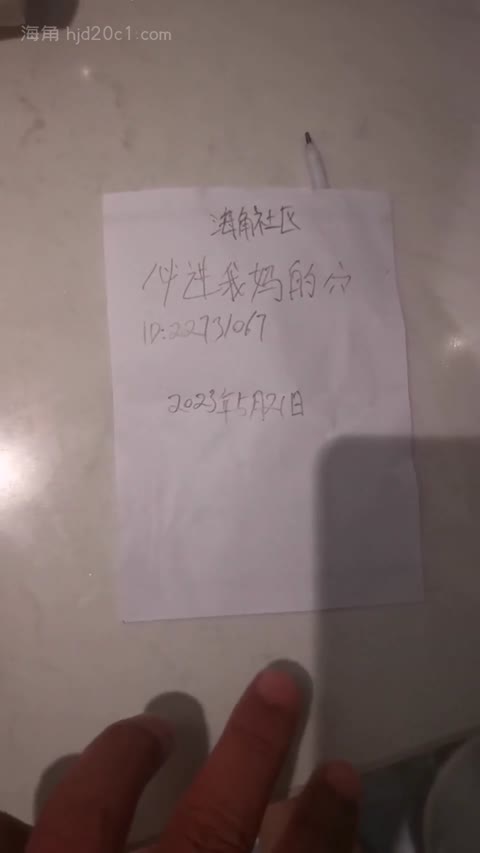 海角 hjd20c1.com
海角社区
进我妈的
ID:22731067
2023年5月21日